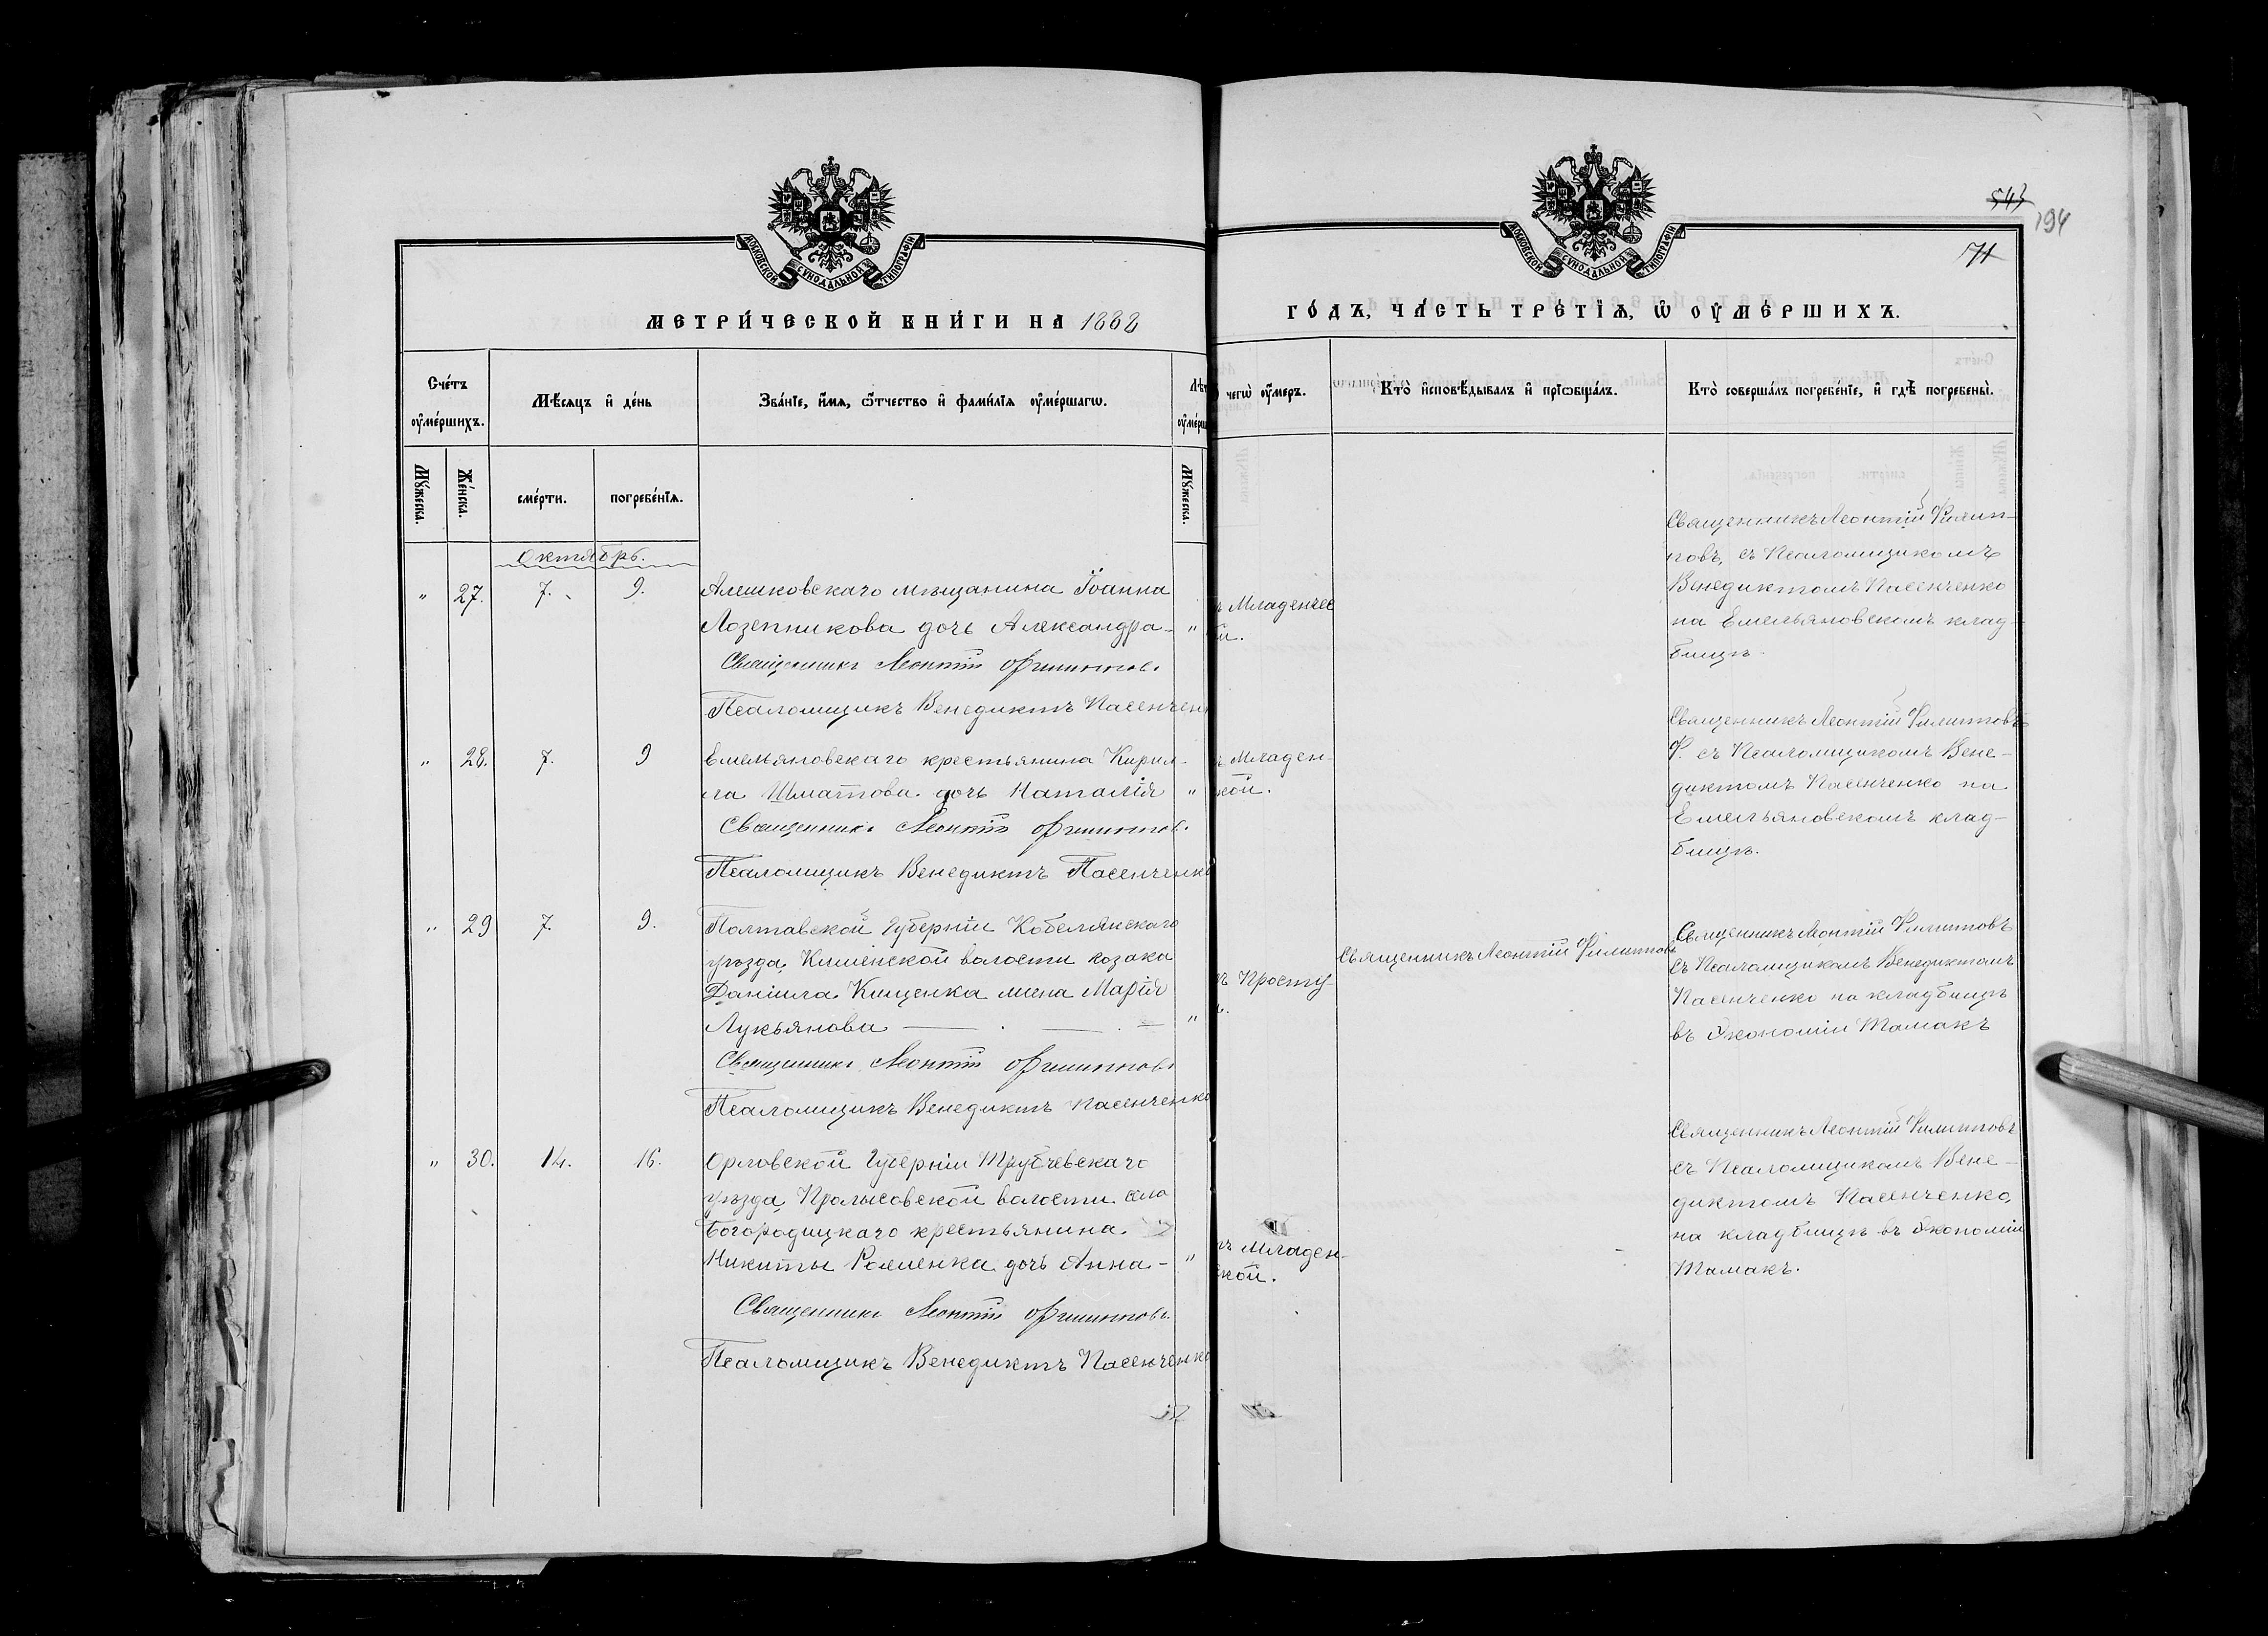 543
194
71
МОСКОВСКОЙ СѴНОДАЛЬНОЙ ТИПОГРАФІИ
МОСКОВСКОЙ СѴНОДАЛЬНОЙ ТИПОГРАФІИ
МЕТРИ́ЧЕСКОЙ КНИ́ГИ НА 1888
ГО́ДЪ, ЧА́СТЬ ТРЕ́ТІѦ, Ѿ ОУ҆МЕ́РШИХЪ.
Сче́тъ
оу҆ме́ршихъ.
Мѣ́сяцъ и҆ де́нь
Зва́нїе, и҆́мѧ, ѻ҆́тчество и҆ фамилїѧ оу҆ме́ршагѡ.
Лѣт
оу҆ме́рш
чегѡ̀ оу҆́меръ.
Кто̀ и҆сповѣ́дывалъ и҆ прїѡбща́лъ.
Кто̀ соверша́лъ погребе́нїе, и҆ гдѣ̀ погребены̀.
Му́жеска.
Же́нска.
сме́рти.
погребе́нїѧ.
Му́жеска.
Октябрь.
" 27. 7. 9.
Алешковскаго мѣщанина Іоанна
Лозенникова дочь Александра - "
Священникъ Леонтій Филипповъ.
Псаломщикъ Венедиктъ Пасенчен
Младенчес
Священникъ Леонтій Филип-
повъ, съ Псаломщикомъ
Венедиктомъ Пасенченко
на Емельяновскомъ клад-
бищѣ.
" 28. 7. 9
Емельяновскаго крестьянина Кирил-
ла Шматова дочь Наталія "
Священникъ Леонтій Филипповъ.
Псаломщикъ Венедиктъ Пасенченко
Младен-
кой.
Священникъ Леонтій Филипповъ
Ф. съ Псаломщикомъ Вене-
диктомъ Пасенченко на
Емельяновскомъ клад-
бищѣ.
" 29 7. 9.
Полтавской Губерніи Кобелякскаго
уѣзда, Кишенской волости козака
Даніила Кищенка жена Марія
Лукьянова "
Священникъ Леонтій Филипповъ
Псаломщикъ Венедиктъ Пасенченко
Просту-
Священникъ Леонтій Филиппов
Священникъ Леонтій Филипповъ
съ Псаломщикомъ Венедиктомъ
Пасенченко на кладбищѣ
въ Экономіи Тамакъ
" 30. 14. 16.
Орловской Губерніи Трубчевскаго
уѣзда, Пролысовской волости села
Богородицкаго крестьянина
Никиты дочь Анна - "
Священникъ Леонтій Филипповъ.
Псаломщикъ Венедиктъ Пасенченко
Младен-
кой.
Священникъ Леонтій Филипповъ
съ Псаломщикомъ Вене-
диктомъ Пасенченко,
на кладбищѣ въ Экономіи
Тамакъ.